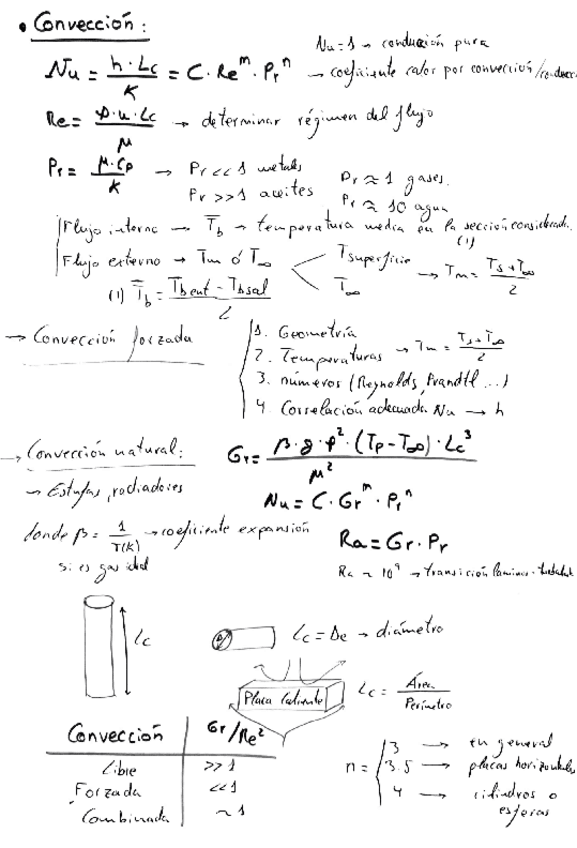 • Convección:
Nu = 1 → conducción pura
Nu = h·Lc / K = C·Re^m·Pr^n → coeficiente calor por convección/conducc
Re = ρ·u·Lc / μ → determinar régimen del flujo
Pr = μ·Cp / K → Pr << 1 metales Pr ≈ 1 gases.
Pr >> 1 aceites Pr ≈ 10 agua
Flujo interno → T̄b → temperatura media en la sección considerada.
(1)
Flujo externo → Tm ó T∞ < Tsuperficie T∞ → Tm = Ts + T∞ / 2
(1) T̄b = Tbent - Tbsal / 2
→ Convección forzada
1. Geometría
2. Temperaturas → Tm = Ts + T∞ / 2
3. números (Reynolds, Prandtl...)
4. Correlación adecuada Nu → h
→ Convección natural: Gr = β·g·ρ²·(Tp - T∞)·Lc³ / μ²
→ Estufas, radiadores
Nu = C·Gr^m·Pr^n
donde β = 1 / T(K) → coeficiente expansión
si es gas ideal
Ra = Gr·Pr
Ra ~ 10⁹ → transición laminar-turbulent
Lc
Lc = De → diámetro
Placa Caliente
Lc = Área / Perímetro
Convección Gr/Re²
Libre >> 1
Forzada << 1
Combinada ~ 1
n = 3 → en general
3.5 → placas horizontales
4 → cilindros o
esferas